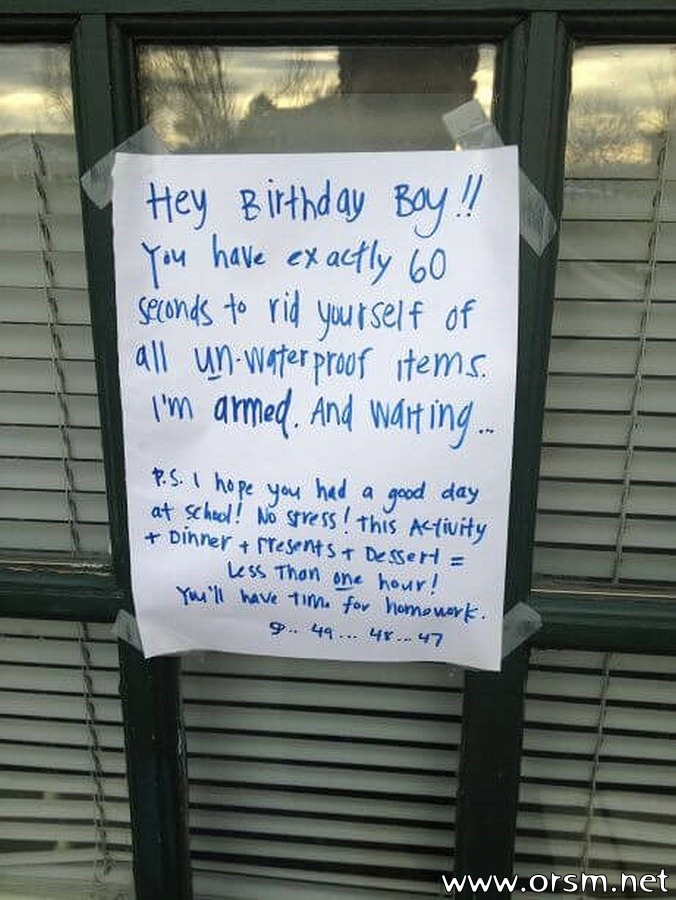 Hey Birthday Boy!!
You have exactly 60
seconds to rid yourself of
all un-waterproof items.
I'm armed. And waiting...
P.S. I hope you had a good day
at school! No stress! This Activity
+ Dinner + Presents + Dessert =
Less Than one hour!
You'll have time for homework.
50.. 49... 48... 47
www.orsm.net